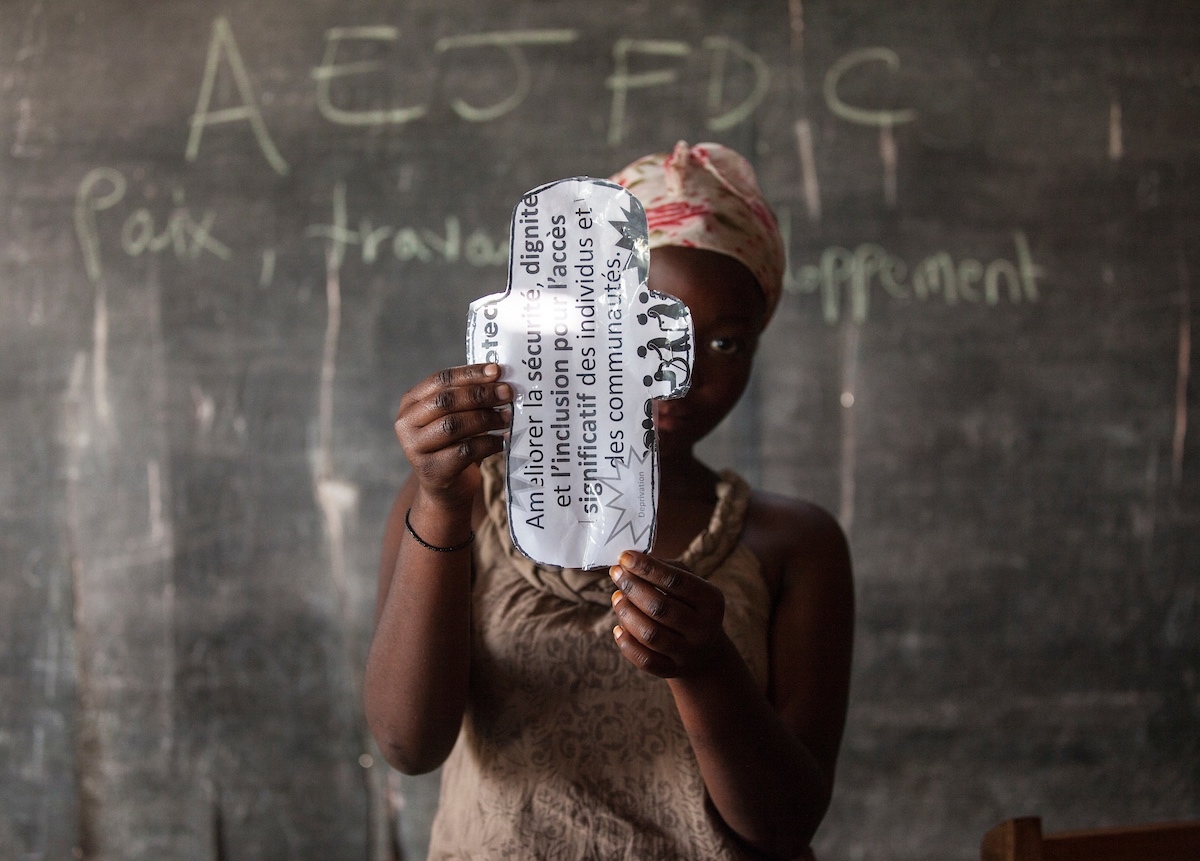 A E J F D C
Paix, trava loppement
otec
Améliorer la sécurité, dignité
et l'inclusion pour l'accès
significatif des individus et
des communautés.
Deprivation